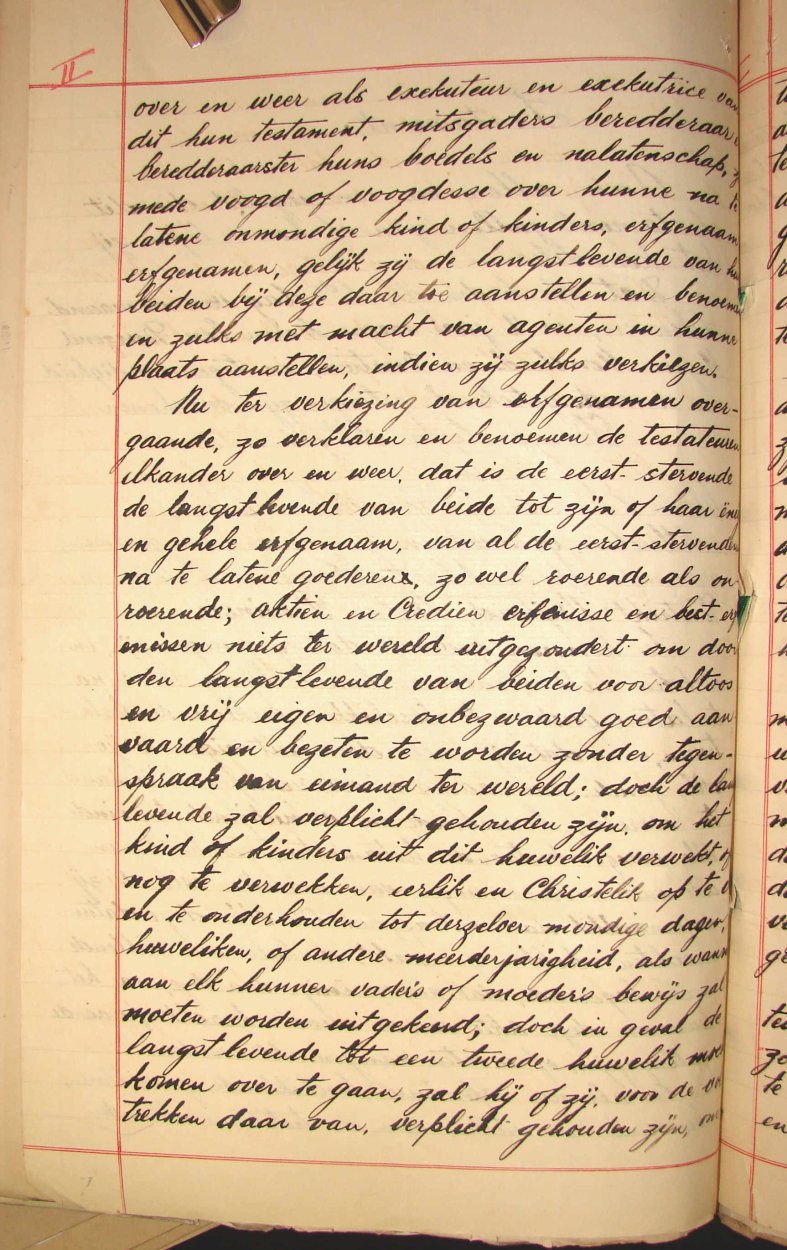 II
over en weer als exekuteur en exekutrice van
dit hun testament, mitsgaders beredderaar
beredderaarster huns boedels en nalatenschap,
mede voogd of voogdesse over hunne na te
latene onmondige kind of kinders, erfgenaam
erfgenamen, gelijk zij de langstlevende van hun
beiden bij deze daar toe aanstellen en benoem
en zulks met macht van agenten in hunne
plaats aanstellen, indien zij zulks verkiezen.
Nu ter verkiezing van erfgenamen over-
gaande, zo verklaren en benoemen de testateuren
elkander over en weer, dat is de eerst-stervende
de langstlevende van beide tot zijn of haar enig
en gehele erfgenaam, van al de eerst-stervenden
na te latene goederen, zo wel roerende als on-
roerende; aktien en Credien erfenisse en best-erf
enissen niets ter wereld uitgezondert om door
den langstlevende van beiden voor altoos
en vrij eigen en onbezwaard goed aan
vaard en bezeten te worden zonder tegen-
spraak van eimand ter wereld; doch de lan
levende zal verplicht gehouden zijn, om het
kind of kinders uit dit huwelik verwekt, of
nog te verwekken, eerlik en Christelik op te
en te onderhouden tot derzelver mondige dagen,
huweliken, of andere meerderjarigheid, als wann
aan elk hunner vader's of moeder's bewijs zal
moeten worden uitgekend; doch in geval de
langstlevende tot een tweede huwelik moc
komen over te gaan, zal hij of zij, voor de vol
trekken daar van, verplicht gehouden zijn, om